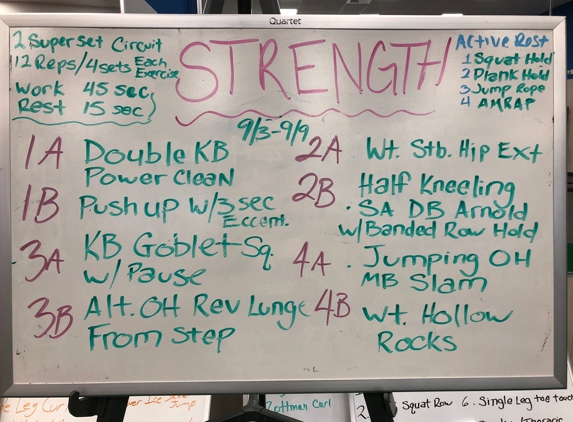 Quartet
2 Superset Circuit
12 Reps/4sets Each Exercise
Work 45 sec
Rest 15 sec
STRENGTH
9/3-9/9
Active Rest
1 Squat Hold
2 Plank Hold
3 Jump Rope
4 AMRAP
1A Double KB
Power Clean
1B Push up w/3 sec
Eccent.
2A Wt. Stb. Hip Ext
2B Half Kneeling
SA DB Arnold
w/Banded Row Hold
3A KB Goblet Sq.
w/ Pause
3B Alt. OH Rev Lunge
From Step
4A Jumping OH
MB Slam
4B Wt. Hollow
Rocks
Leg Cur
Jump
Zottman Curl
Squat Row 6. Single Leg toe touch